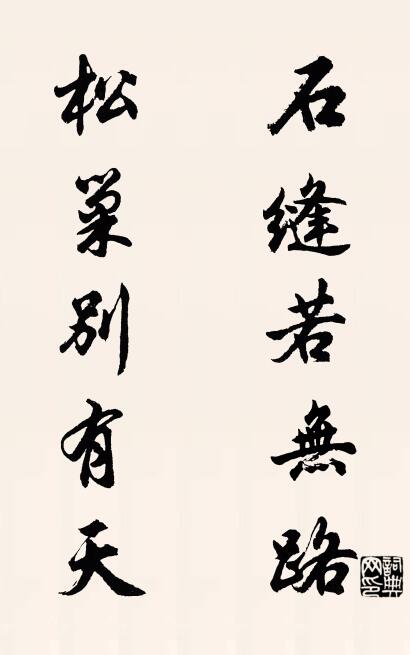 石縫若無路
松巢別有天
詞典網印